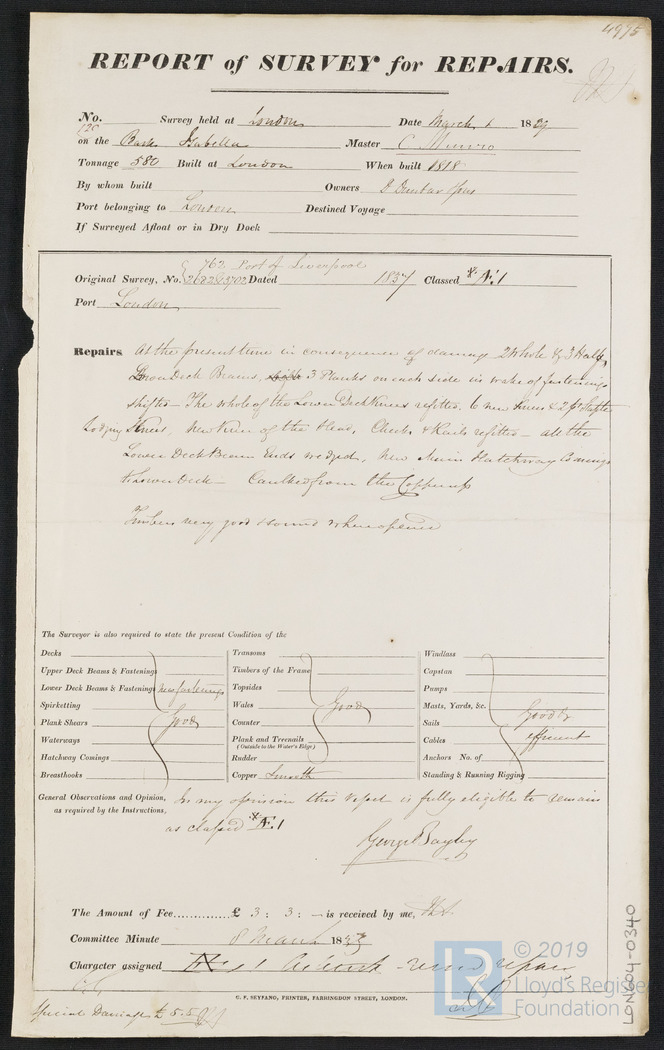 4975
REPORT of SURVEY for REPAIRS.
No. Survey held at London Date March 1839
on the Bark Isabella Master C Munro
Tonnage 580 Built at London When built 1818
By whom built Owners D Dunbar & Sons
Port belonging to London Destined Voyage
If Surveyed Afloat or in Dry Dock
762 Port of Liverpool
Original Survey, No. Dated 1837 Classed Æ 1
Port London
Repairs At the present time in consequence of damage 2 Whole & 3 Half
Lower Deck Beams, 3 Planks on each side in wake of fastenings
shifted – The whole of the Lower Deck Knees refitted, 6 new Knees & 2
Lodging Knees, New Knee of the Head, Cheeks & Rails refitted – all the
Lower Deck Beam Ends wedged, New Main Hatchway Comings
to Lower Deck – Caulked from the Copper up
Timbers very good & sound where opened
The Surveyor is also required to state the present Condition of the
Decks Transoms Windlass
Upper Deck Beams & Fastenings Timbers of the Frame Capstan
Lower Deck Beams & Fastenings new fastenings Topsides Pumps
Spirketting Wales Good Masts, Yards, &c.
Plank Shears Good Counter Sails Good &
Waterways Plank and Treenails Cables efficient
(Outside to the Water's Edge)
Hatchway Comings Rudder Anchors No. of
Breasthooks Copper Smooth Standing & Running Rigging
General Observations and Opinion, In my opinion this Vessel is fully eligible to remain
as required by the Instructions, as classed Æ 1
George Bayley
The Amount of Fee £ 3 : 3 : – is received by me,
Committee Minute 8 March 1839
Character assigned
C. F. SEYFANG, PRINTER, FARRINGDON STREET, LONDON.
Special Damage £ 5.5
LON604-0340
LR
© 2019
Lloyd's Register
Foundation